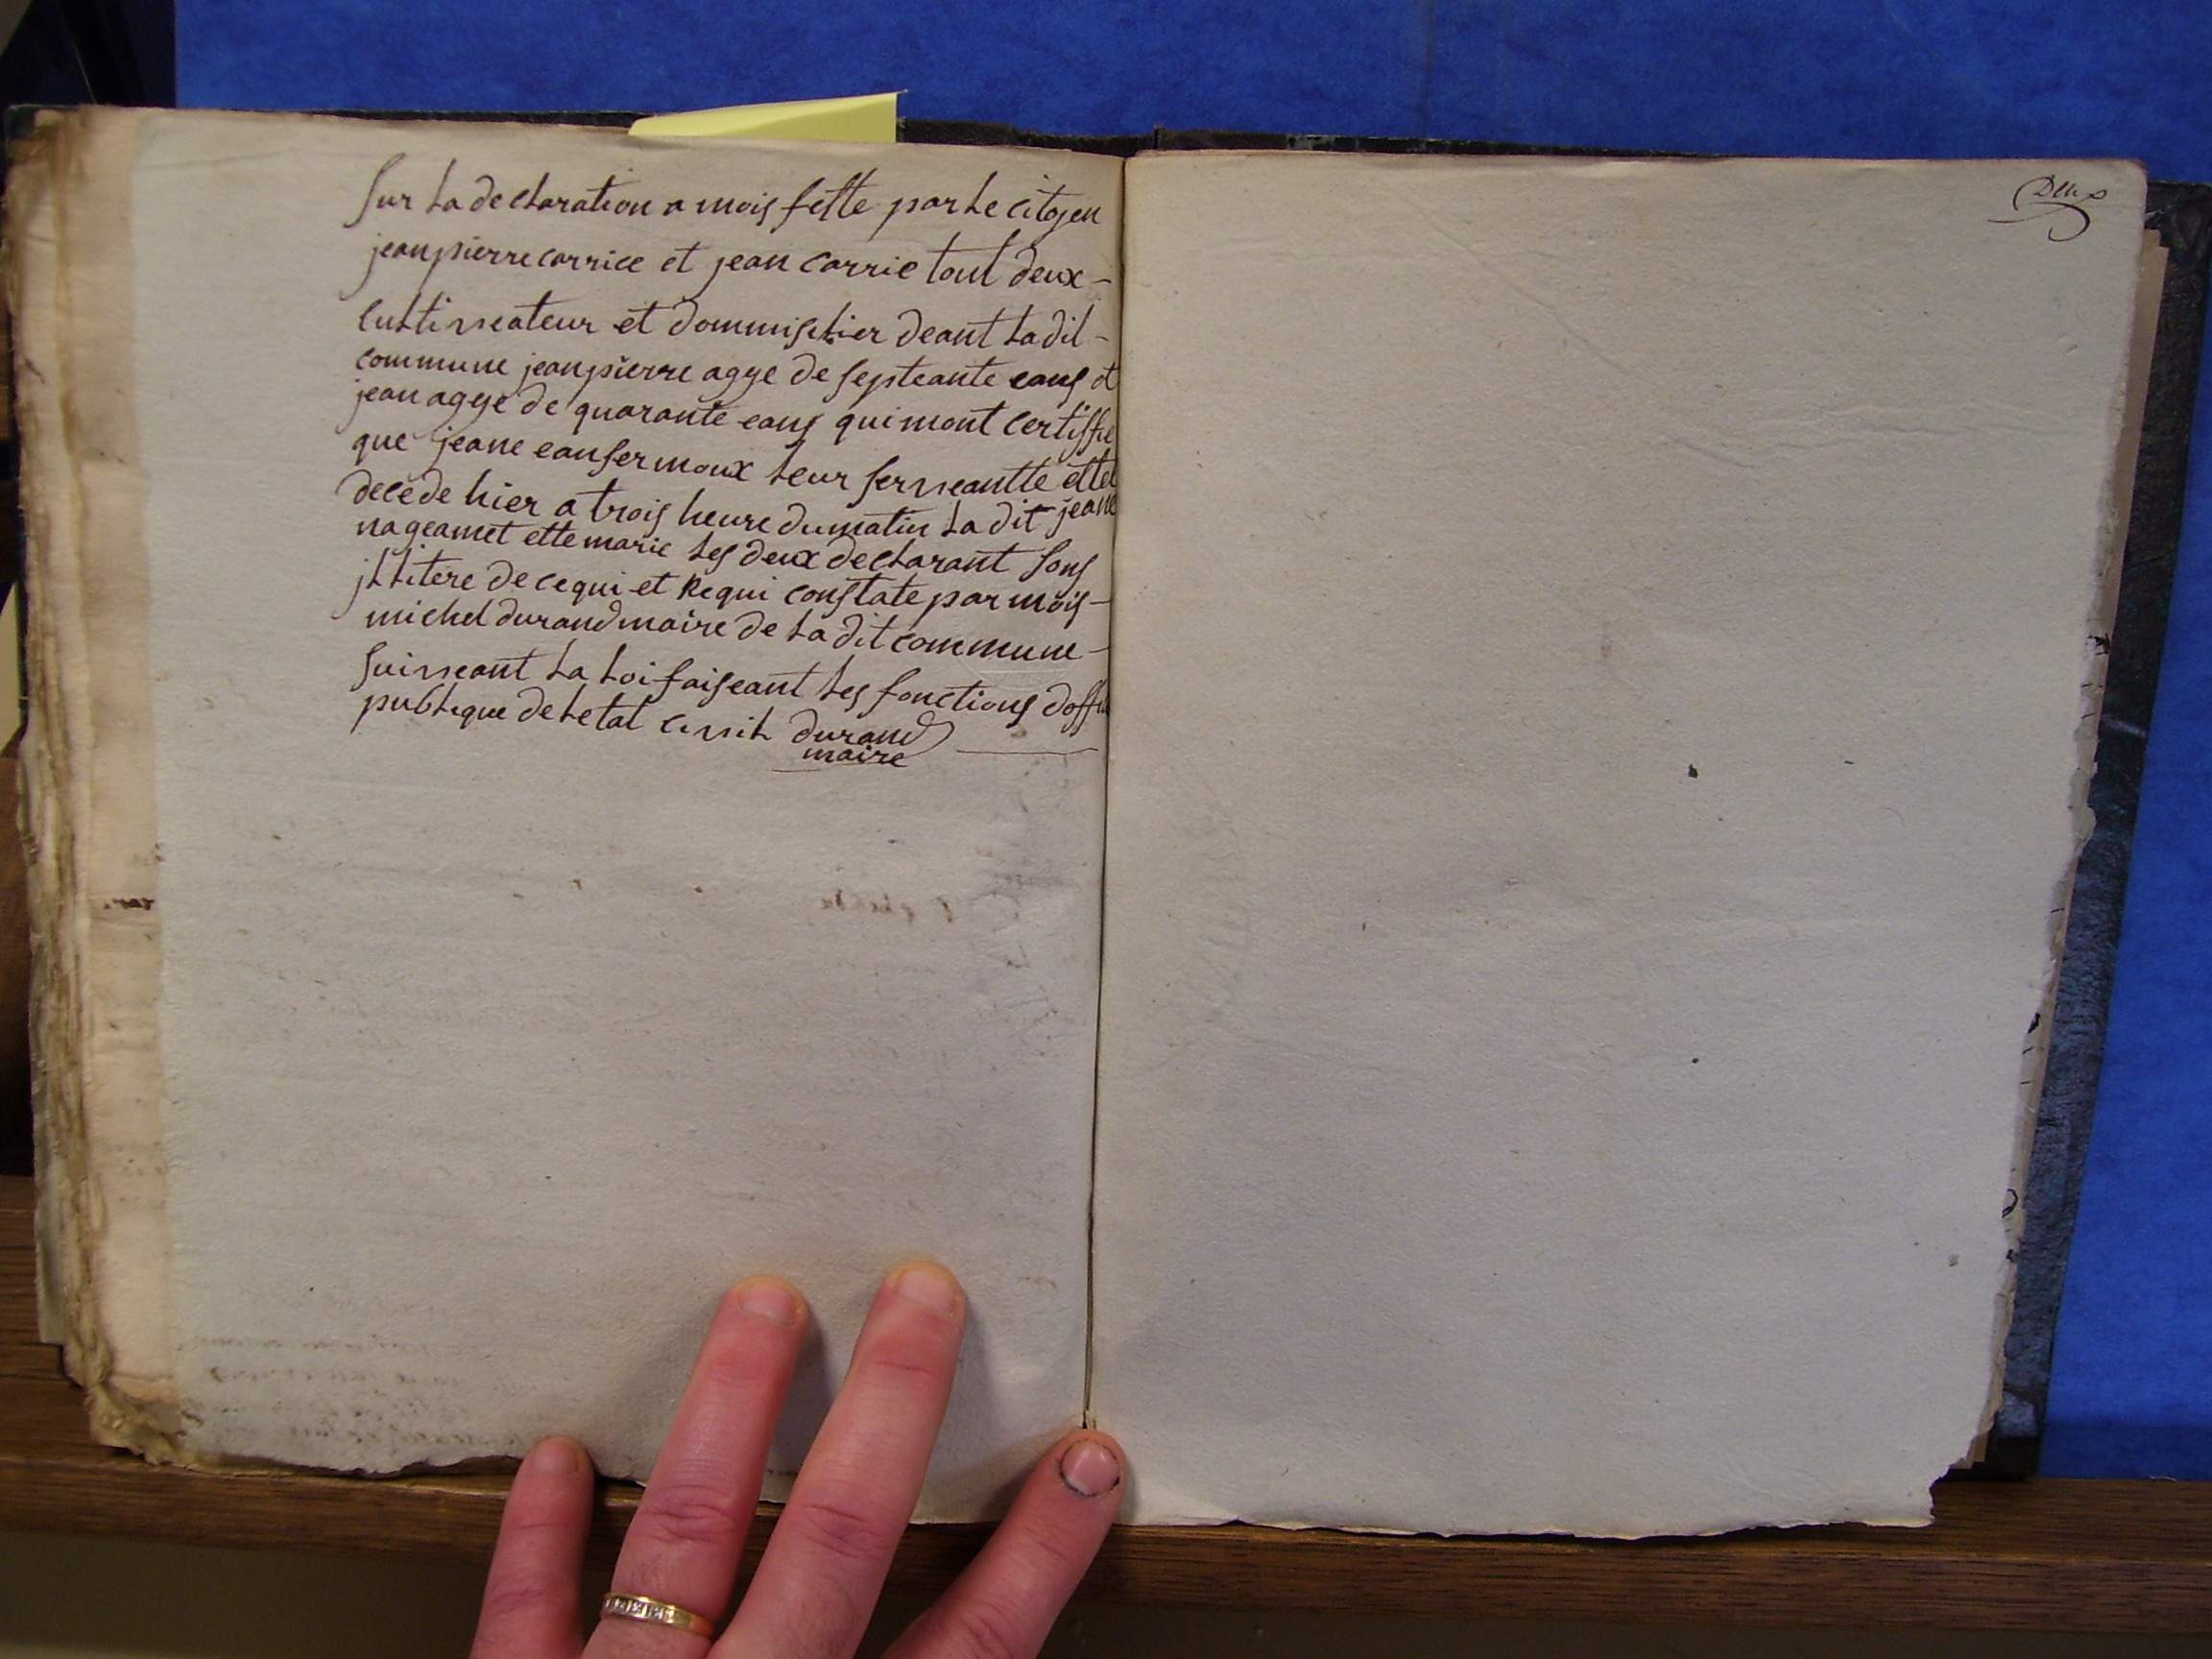 Sur la declaration a mois fette par le citoyen
jean pierre carrice et jean carrie tout deux -
cultivateur et dommisilier deant la dit -
commune jean pierre agye de septeante eans et
jean agye de quarante eans qui mont certiffie
que jeane eanfermoux leur serveantte ette
decede hier a trois heure du matin la dit jeane
na jeamet ette marie les deux declarant sons
jllitere de ce qui et Requi constate par mois -
michel durand maire de la dit commune -
suiveant la loi faiseant les fonctions doffi
publique de letat civil durand
maire
Deux